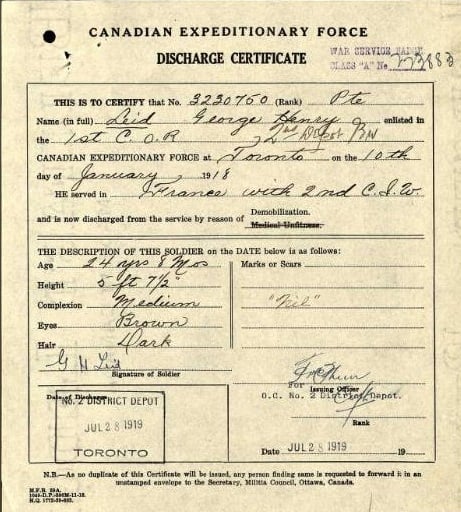 CANADIAN EXPEDITIONARY FORCE
DISCHARGE CERTIFICATE
WAR SERVICE BADGE
CLASS "A" No
THIS IS TO CERTIFY that No. 3230750 (Rank) Pte
Name (in full) Leid George Henry enlisted in
the 1st C.O.R 2nd Depot Bn
CANADIAN EXPEDITIONARY FORCE at Toronto on the 10th
day of January 1918
HE served in France with 2nd C.I.W.
and is now discharged from the service by reason of Demobilization.
Medical Unfitness.
THE DESCRIPTION OF THIS SOLDIER on the DATE below is as follows:
Age 24 yrs 8 Mos
Height 5 ft 7½"
Complexion Medium
Eyes Brown
Hair Dark
G H Leid
Signature of Soldier
Marks or Scars
"Nil"
For Issuing Officer
O.C. No. 2 District Depot.
Rank
Date of Discharge
No. 2 DISTRICT DEPOT
JUL 28 1919
TORONTO
Date JUL 28 1919 19
N.B.—As no duplicate of this Certificate will be issued, any person finding same is requested to forward it in an
unstamped envelope to the Secretary, Militia Council, Ottawa, Canada.
M.F.B. 39A.